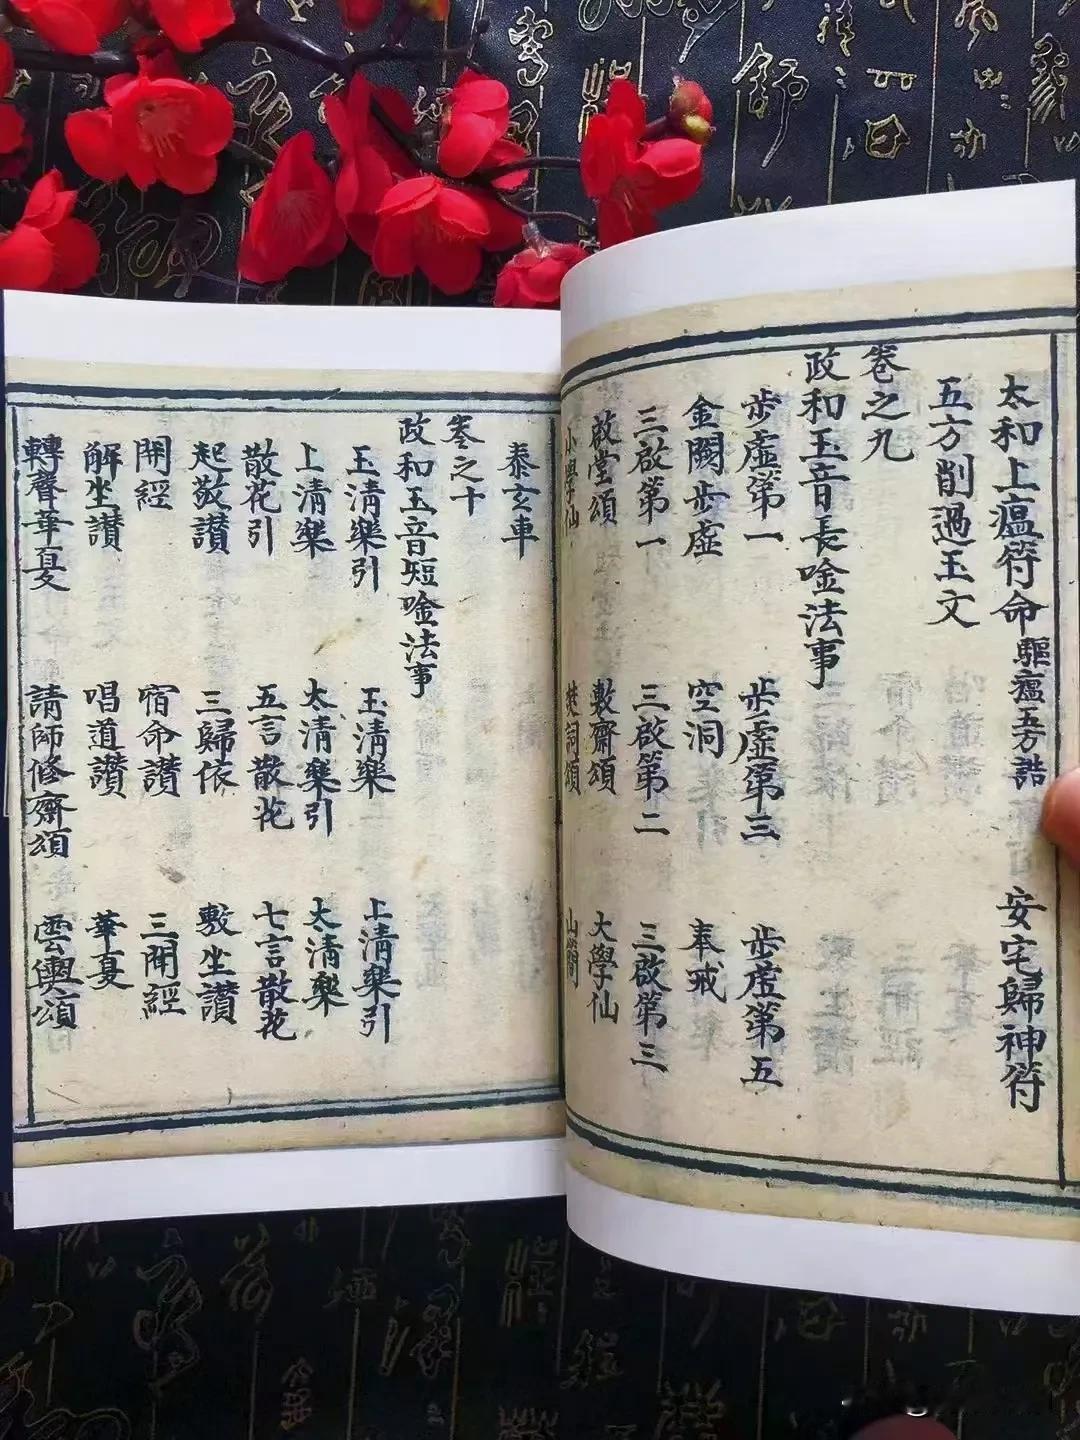 太和上瘟符命 驅瘟五方誥 安宅歸神符
五方削過玉文
卷之九
政和玉音長唫法事
步虛第一 步虛第三 步虛第五
金闕步虛 空洞 奉戒
三啟第一 三啟第二 三啟第三
啟堂頌 敷齋頌 大學仙
小學仙 焚詞頌 山簡
泰玄車
卷之十
政和玉音短唫法事
玉清樂引 玉清樂 上清樂引
上清樂 太清樂引 太清樂
散花引 五言散花 七言散花
起敬讃 三歸依 敷坐讃
開經 宿命讃 三開經
解坐讃 唱道讃 華夏
轉聲華夏 請師修齋頌 雲輿頌